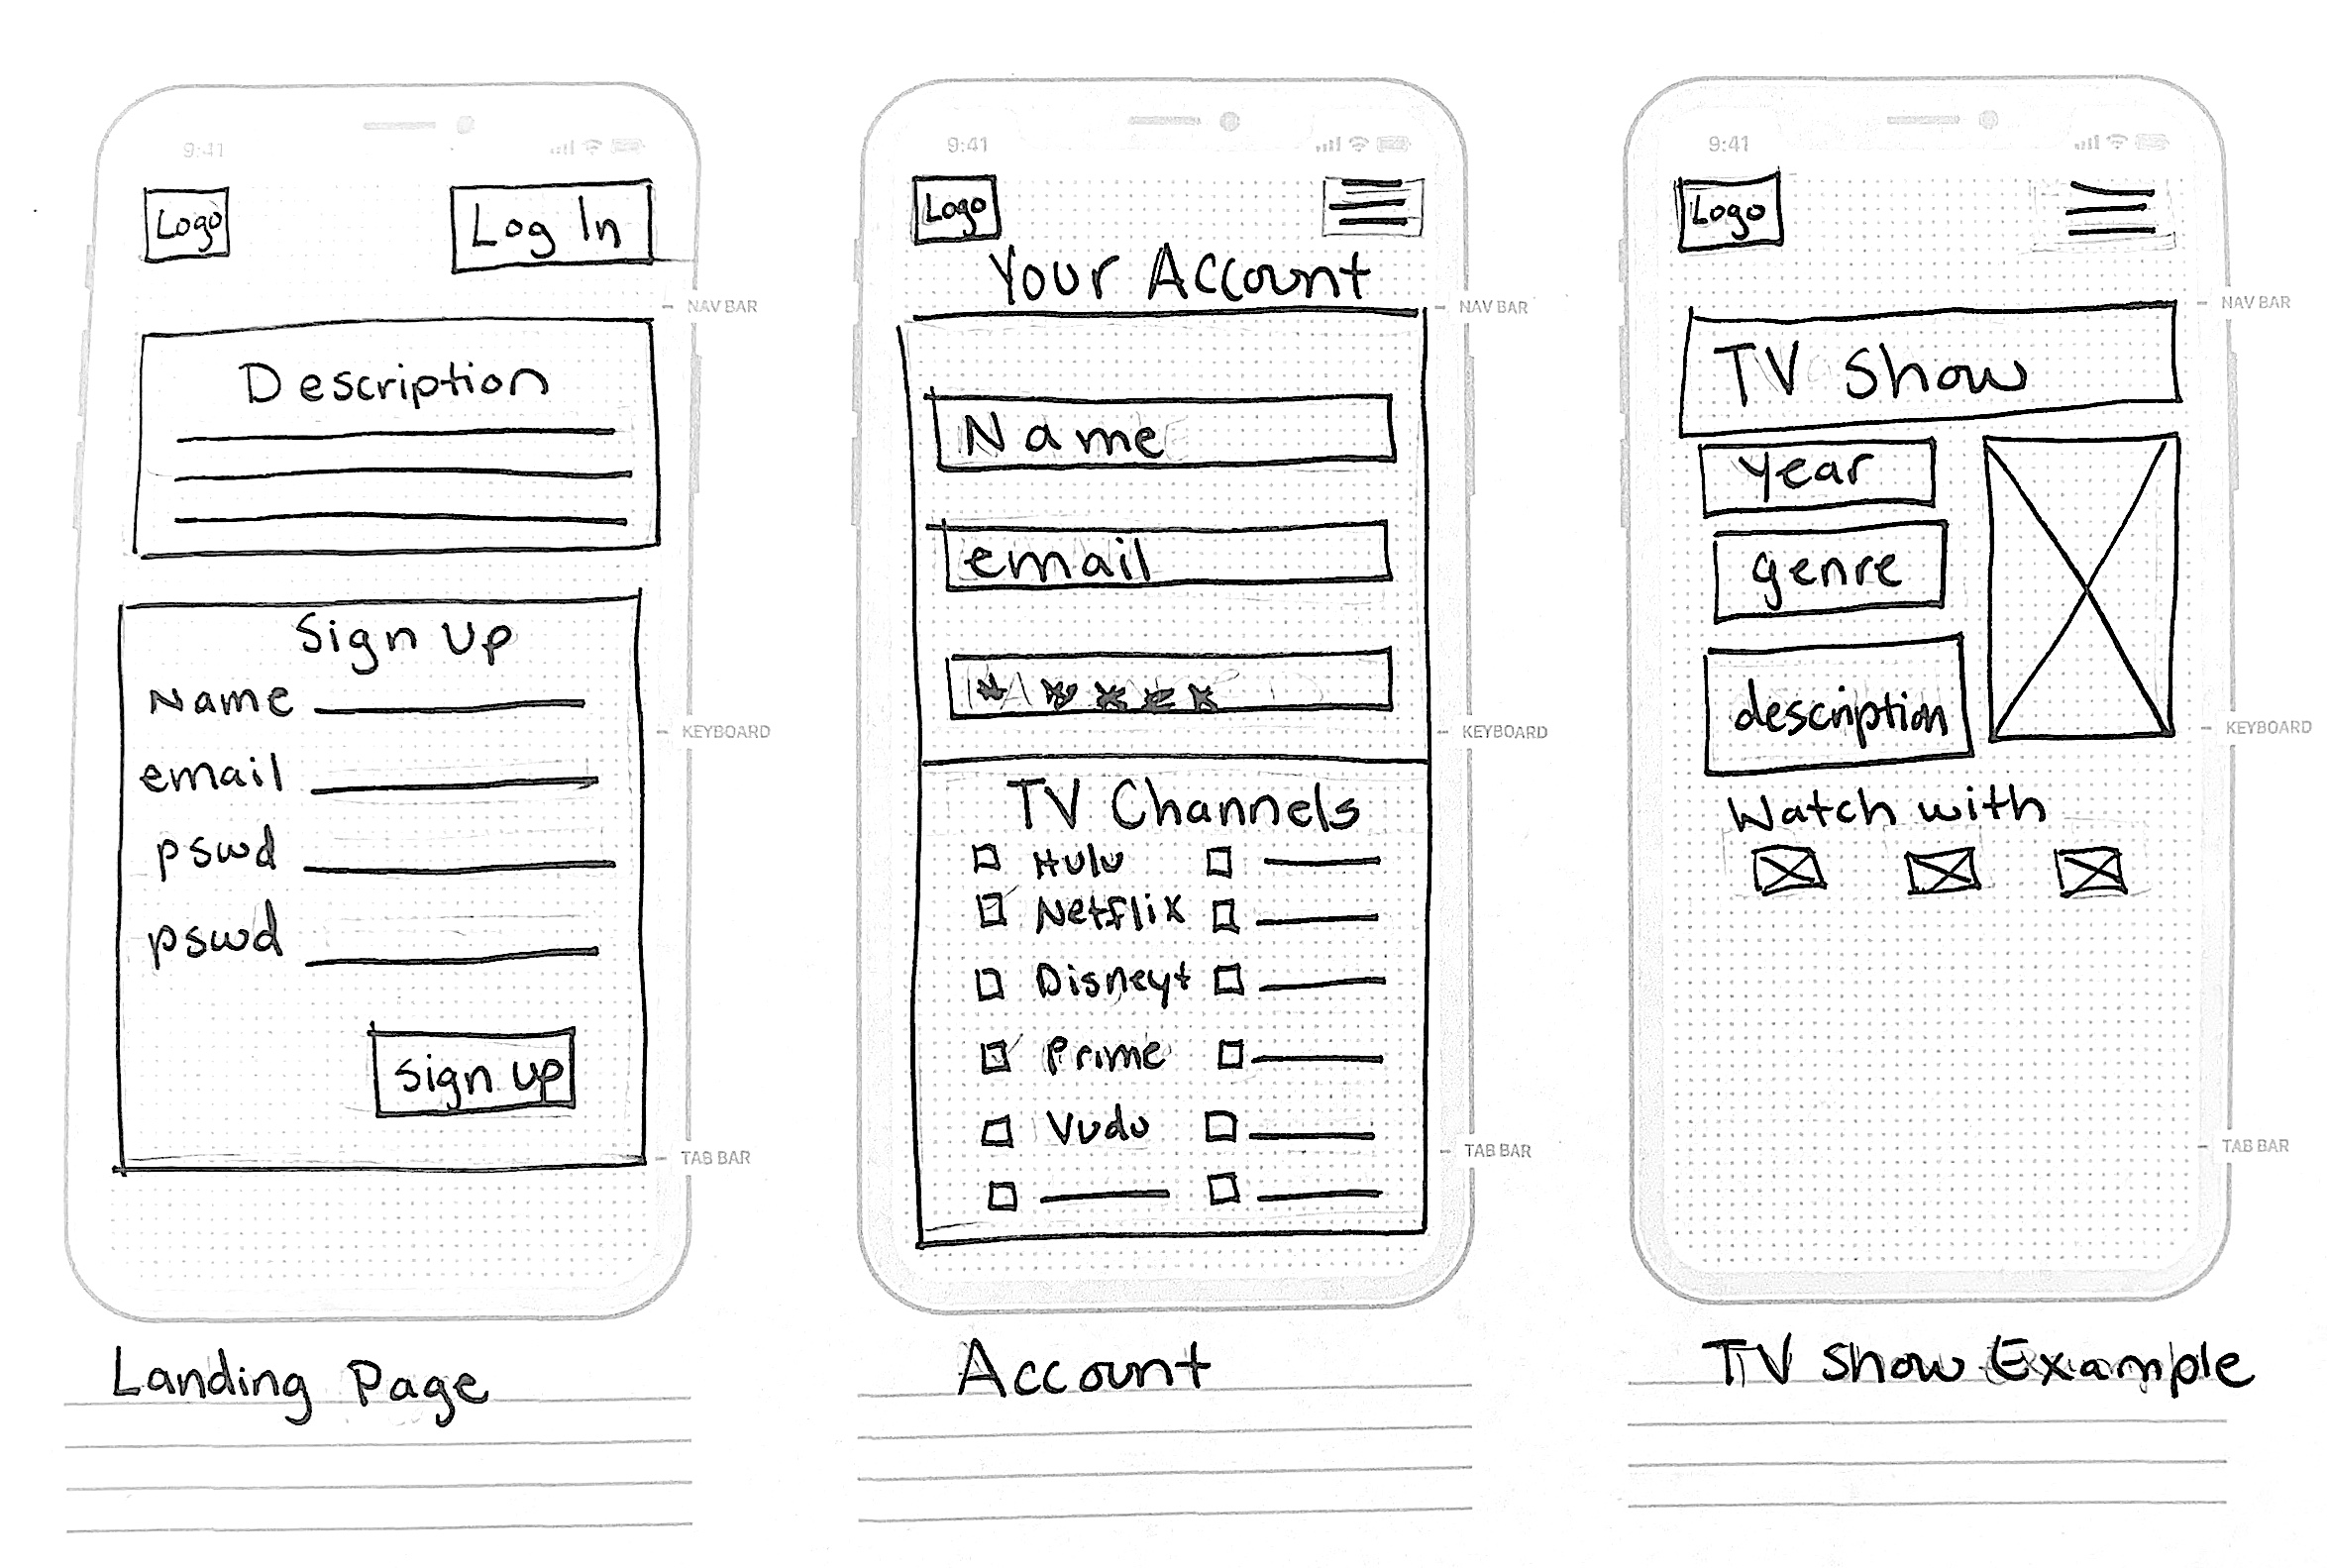 9:41
Logo
Log In
NAV BAR
Description
Sign Up
Name
email
KEYBOARD
pswd
pswd
sign up
TAB BAR
Landing Page
9:41
Logo
Your Account
NAV BAR
Name
email
*****
KEYBOARD
TV Channels
Hulu
Netflix
Disney+
Prime
Vudu
TAB BAR
Account
9:41
Logo
NAV BAR
TV Show
year
genre
description
KEYBOARD
Watch with
TAB BAR
TV Show Example